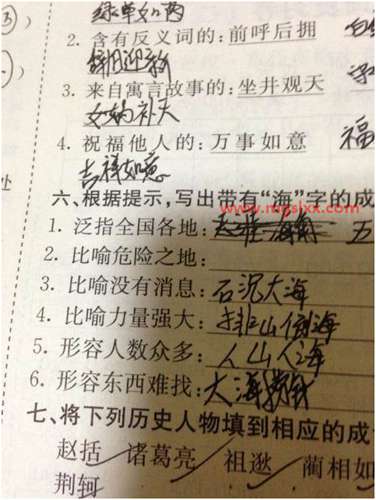 2. 含有反义词的：前呼后拥
辞旧迎新
3. 来自寓言故事的：坐井观天
女娲补天
4. 祝福他人的：万事如意 福
吉祥如意
六、根据提示，写出带有“海”字的成
www.mgslxx.com
1. 泛指全国各地： 五
2. 比喻危险之地：
3. 比喻没有消息：石沉大海
4. 比喻力量强大：排山倒海
5. 形容人数众多：人山人海
6. 形容东西难找：大海捞针
七、将下列历史人物填到相应的成
赵括 诸葛亮 祖逖 蔺相如
荆轲